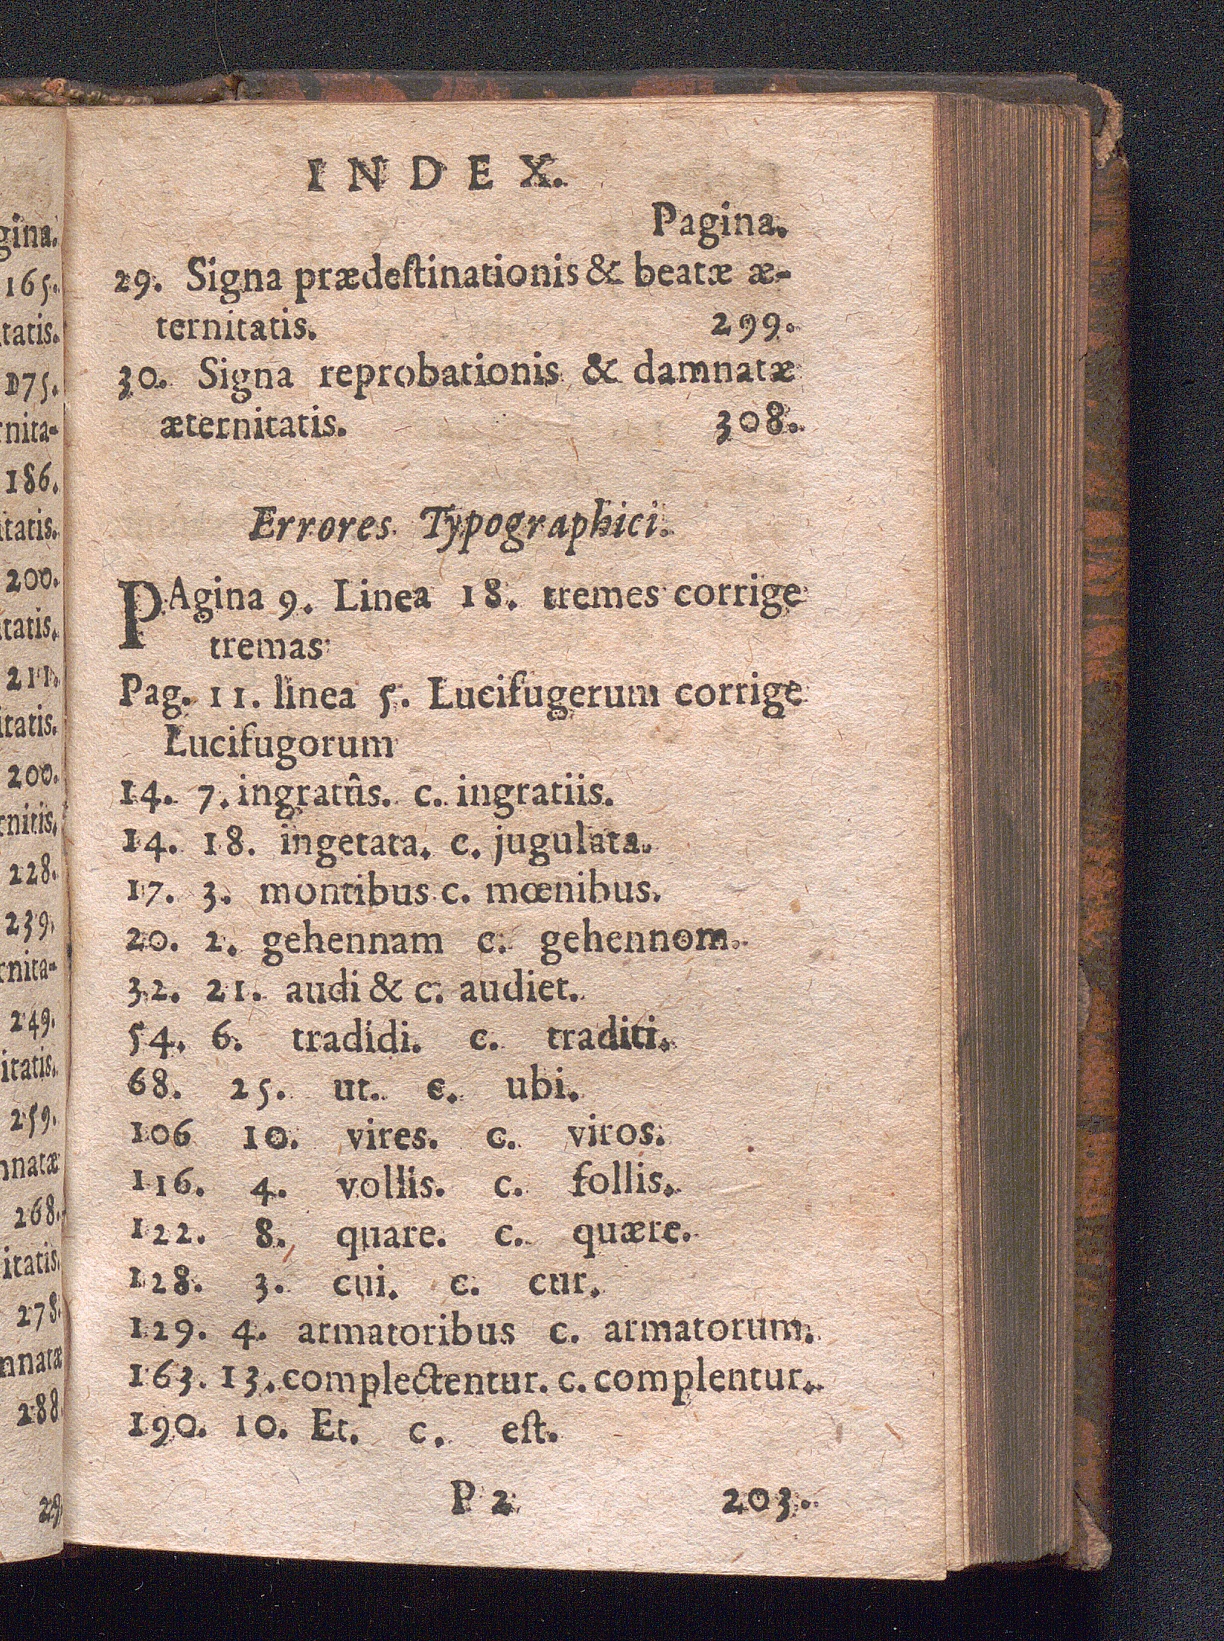 INDEX.
Pagina.
29. Signa prædestinationis & beatæ æ-
ternitatis. 299.
30. Signa reprobationis & damnatæ
æternitatis. 308.
Errores Typographici.
PAgina 9. Linea 18. tremes corrige
tremas
Pag. 11. linea 5. Lucifugerum corrige
Lucifugorum
14. 7. ingratûs. c. ingratiis.
14. 18. ingetata. c. jugulata.
17. 3. montibus c. mœnibus.
20. 2. gehennam c. gehennom.
32. 21. audi & c. audiet.
54. 6. tradidi. c. traditi.
68. 25. ut. c. ubi.
106 10. vires. c. viros.
116. 4. vollis. c. follis.
122. 8. quare. c. quære.
128. 3. cui. c. cur.
129. 4. armatoribus c. armatorum.
163. 13. complectentur. c. complentur.
190. 10. Et. c. est.
P 2 203.
gina.
165.
tatis.
175.
rnita-
186.
itatis.
200.
itatis.
211.
itatis.
200.
rnitis.
228.
239.
rnita-
249.
itatis.
259.
nnatæ
268.
itatis.
278.
mnatæ
288
29